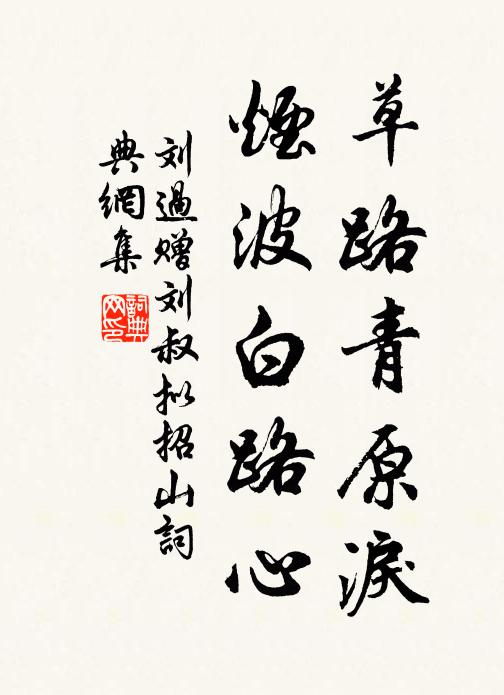 草路青原淚
煙波白路心
刘過赠刘叔拟招山詞
典網集
詞典
网印